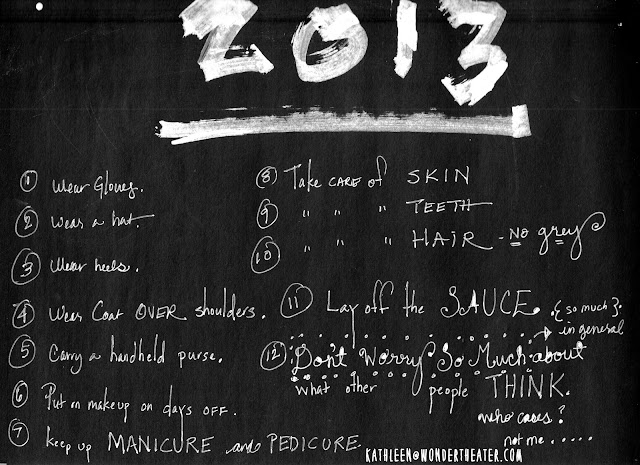 2013
① Wear Gloves.
② Wear a hat.
③ Wear heels.
④ Wear Coat OVER shoulders.
⑤ Carry a handheld purse.
⑥ Put on makeup on days OFF.
⑦ keep up MANICURE and PEDICURE
⑧ Take CARE of SKIN
⑨ " " " TEETH
⑩ " " " HAIR - NO grey
⑪ Lay off the SAUCE. {so much}.
in general
⑫ Don't Worry So Much about
what other people THINK.
who cares?
not me.....
KATHLEEN@WONDERTHEATER.COM